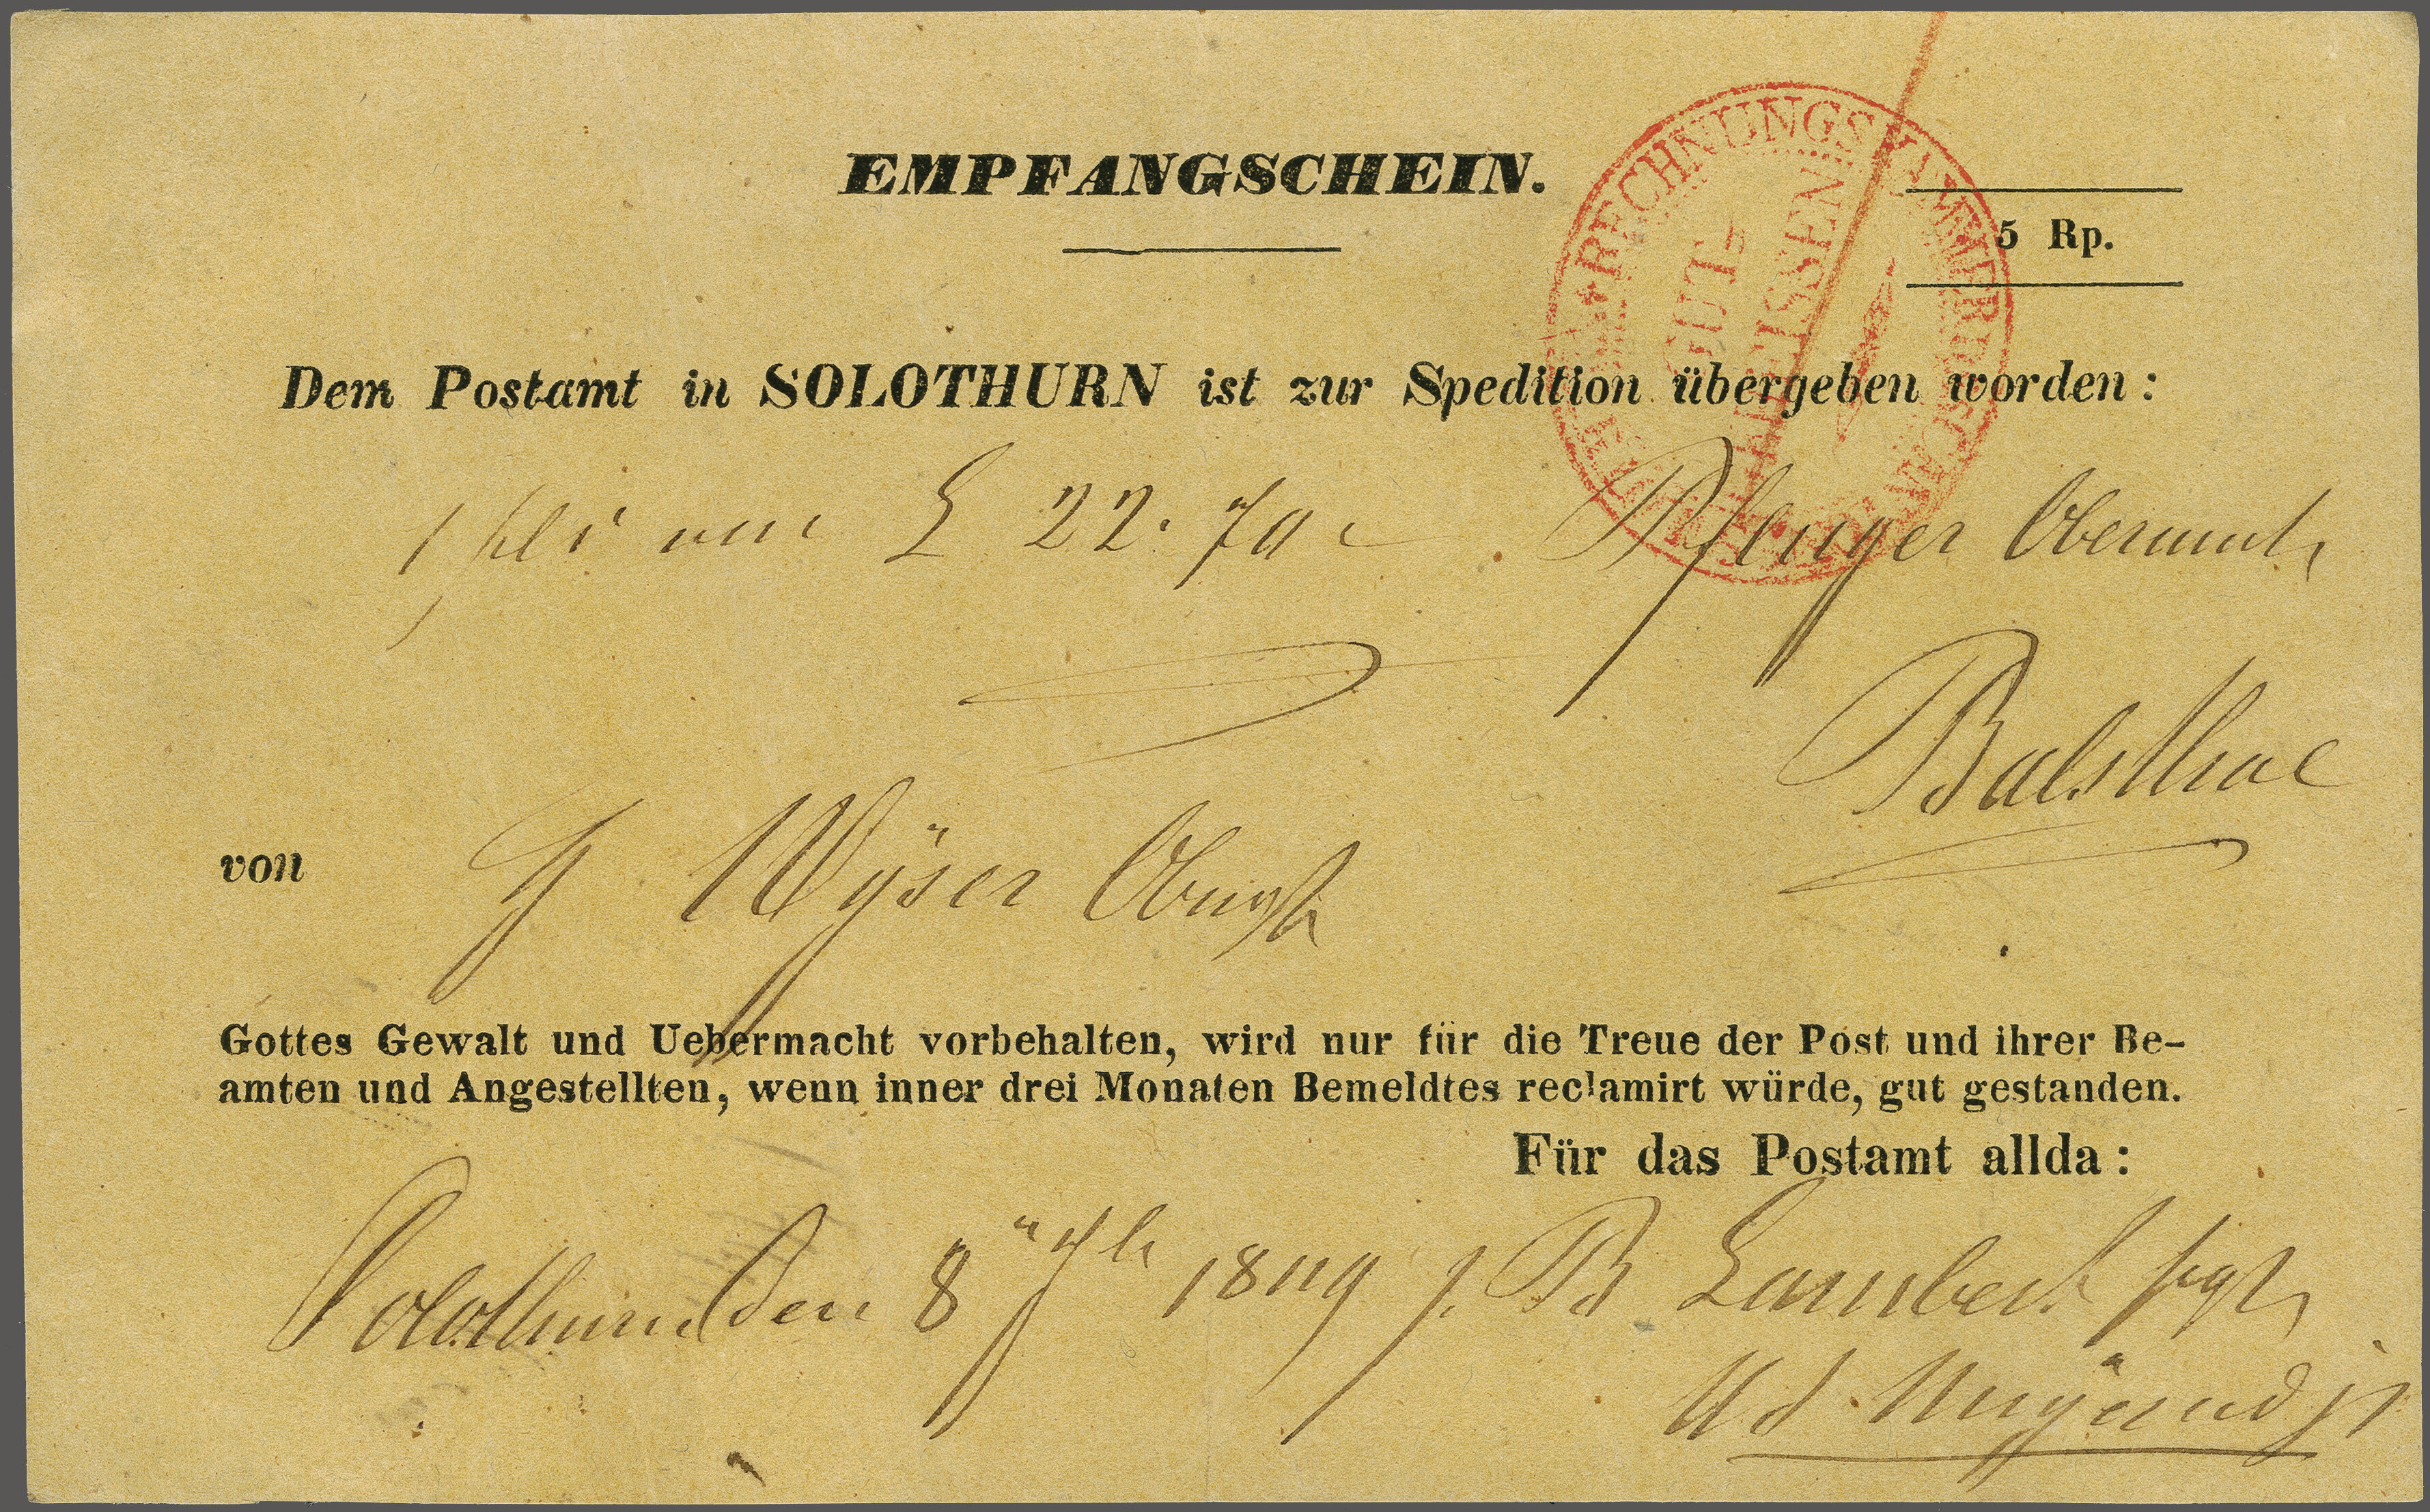 EMPFANGSCHEIN.
RECHNUNGSKAMMER
GUT-
GEHEISSEN
5 Rp.
Dem Postamt in SOLOTHURN ist zur Spedition übergeben worden:
1 22. 70 Pfluger Oberamt
Balsthal
von Wÿser
Gottes Gewalt und Uebermacht vorbehalten, wird nur für die Treue der Post und ihrer Be-
amten und Angestellten, wenn inner drei Monaten Bemeldtes reclamirt würde, gut gestanden.
Für das Postamt allda:
Solothurn den 8 1849 B Lambert